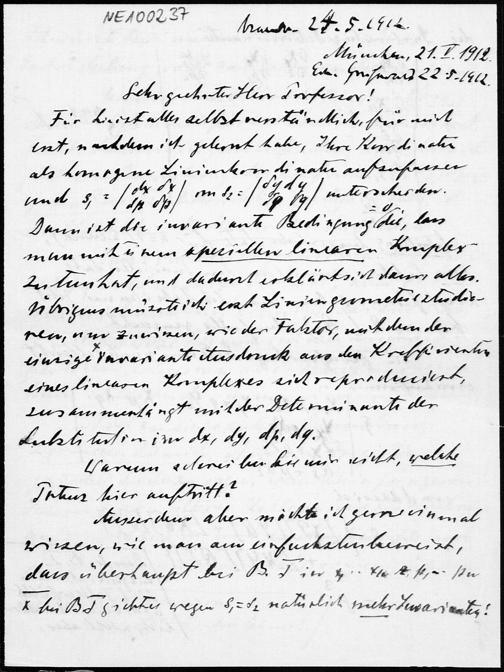 NE100237
24.5.1912
München, 21.V.1912.
22.5.1912
Sehr geehrter Herr Professor!
Für ist alles selbstverständlich, für mich
erst, nachdem ich gelernt habe, Ihre Koordinaten
als homogene Linienkoordinaten aufzufassen
und s₁ = | dx δx / dp δp | von s₂ = | δy dy / δq dq | unterscheiden.
Dann ist die invariante Bedingung = 0 die, dass
man mit einem speziellen linearen Komplex
zu tun hat, und dadurch erklärt sich dann alles.
Übrigens müsste ich erst Liniengeometrie studie-
ren, um zu wissen, wie der Faktor, mit dem der
einzige x invariante Ausdruck aus den Koeffizienten
eines linearen Komplexes sich reproduziert,
zusammenhängt mit der Determinante der
Substitution im dx, dy, dp, dq.
Warum schreiben Sie mir nicht, welche
hier auftritt?
Ausserdem aber möchte ich gerne einmal
wissen, wie man am einfachsten beweist,
dass überhaupt bei B.T. in x₁ ·· xₙ z p₁ ·· pₙ
x bei B.T. gibt es wegen s₁=s₂ natürlich mehr Invarianten!